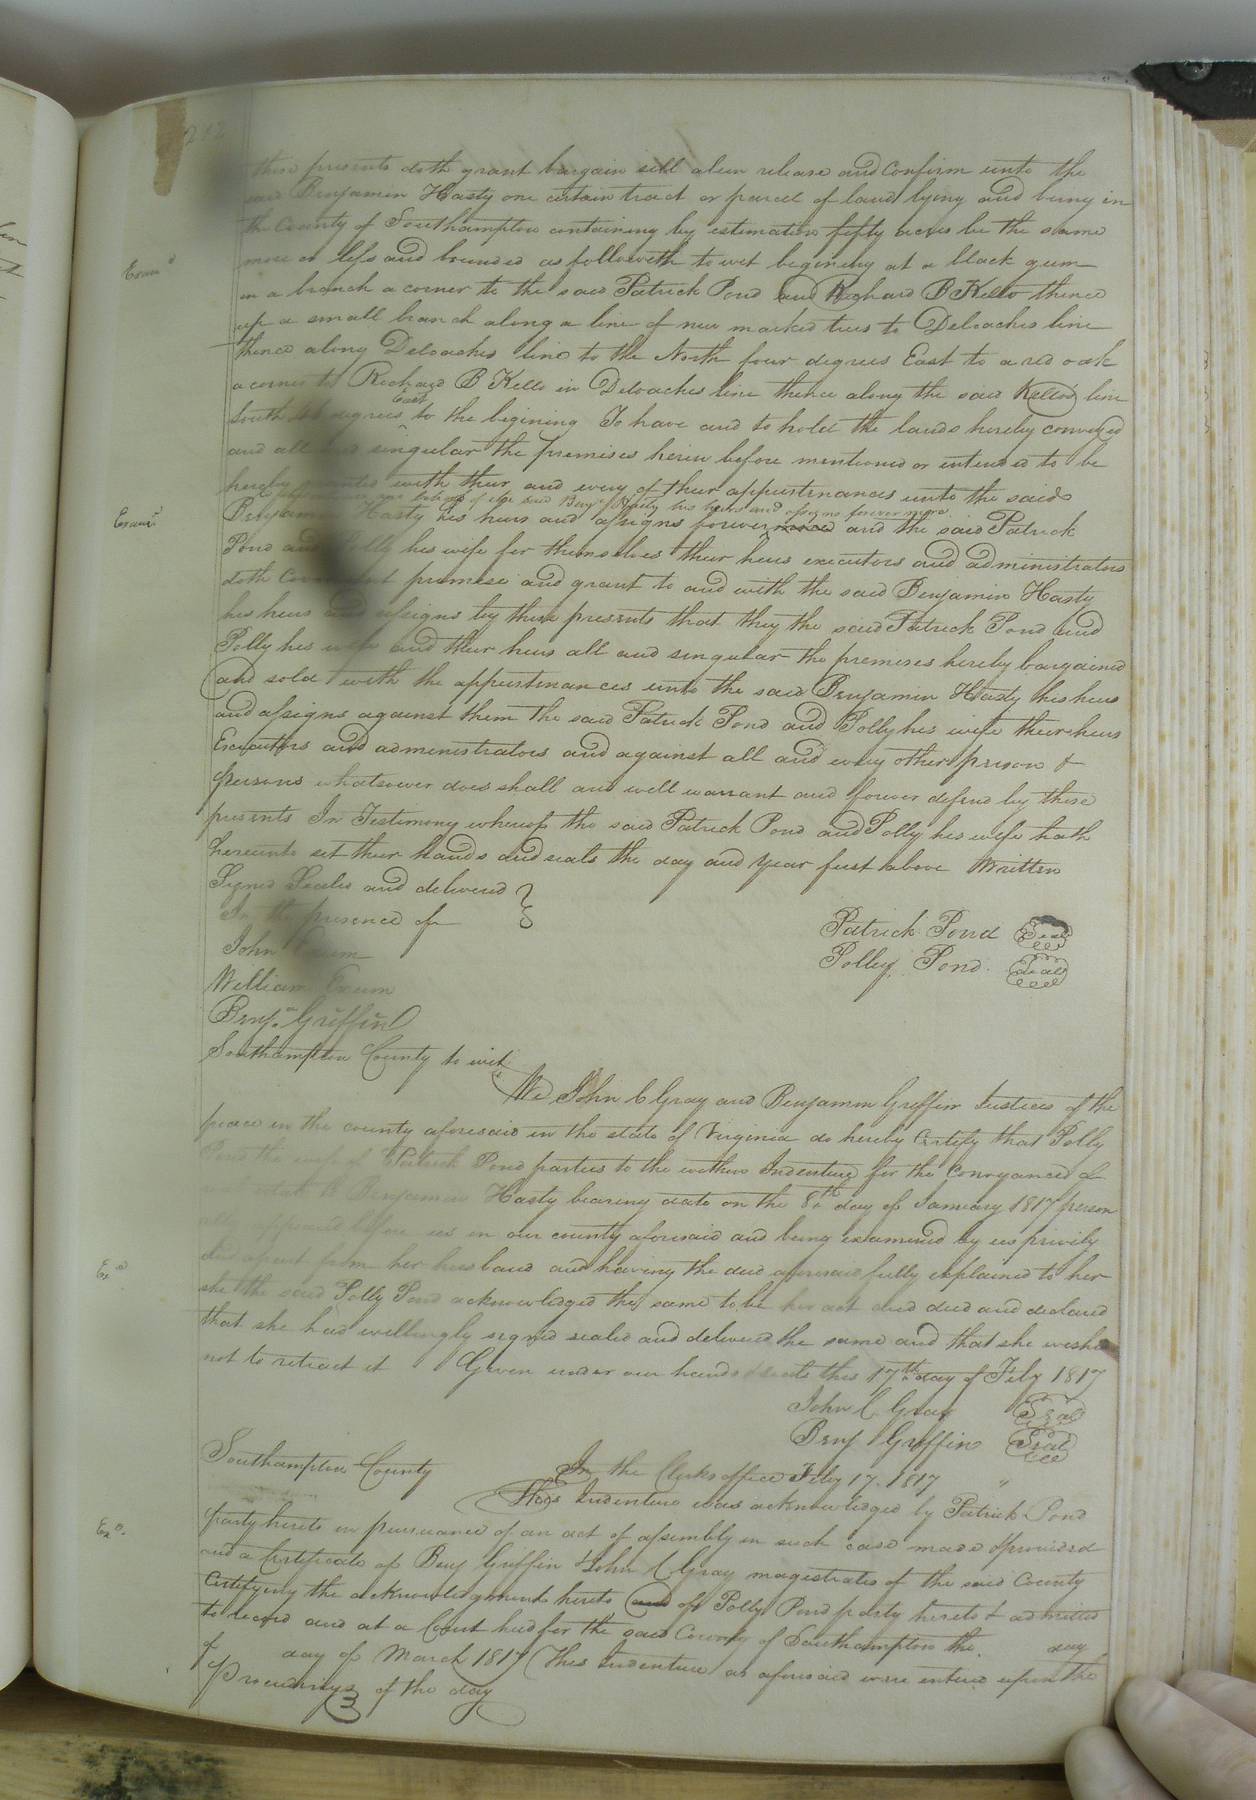 212
these presents doth grant bargain sell alien release and Confirm unto the
said Benjamin Hasty one certain tract or parcel of land lying and being in
the County of Southampton containing by estimation fifty acres be the same
more or less and bounded as followeth to wit begining at a black gum
in a branch a corner to the said Patrick Pond and Richard B Kello thence
up a small branch along a line of new marked trees to Deloaches line
thence along Deloaches line to the North four degrees East to a red oak
a corner to Richard B Kello in Deloaches line thence along the said Kellos line
East
South degrees to the begining To have and to hold the lands hereby conveyed
and all and singular the premises herein before mentioned or intended to be
hereby granted with their and every of their appurtenances unto the said
of the said Benj Hasty his heirs and assigns forevermore
Benjamin Hasty his heirs and assigns forever and the said Patrick
Pond and Polly his wife for themselves their heirs executors and administrators
doth Covenant promise and grant to and with the said Benjamin Hasty
his heirs and assigns by these presents that they the said Patrick Pond and
Polly his wife and their heirs all and singular the premises hereby bargained
and sold with the appurtenances unto the said Benjamin Hasty his heirs
and assigns against them the said Patrick Pond and Polly his wife their heirs
Executors and administrators and against all and every other person &
persons whatsoever does shall and will warrant and forever defend by these
presents In Testimony whereof the said Patrick Pond and Polly his wife hath
hereunto set their hands and seals the day and year first above Written
Signed Sealed and delivered
In the presence of
Patrick Pond Seal
John Exum
Polley Pond Seal
William Exum
Benjn Griffin
Southampton County to wit
We John C Gray and Benjamin Griffin Justices of the
peace in the county aforesaid in the state of Virginia do hereby Certify that Polly
Pond the wife of Patrick Pond parties to the within Indenture for the Conveyance of
to Benjamin Hasty bearing date on the 8th day of January 1817 person
ally appeared before us in our county aforesaid and being examined by us privily
and apart from her husband and having the deed aforesaid fully explained to her
she the said Polly Pond acknowledged the same to be her act and deed and declared
that she had willingly signed sealed and delivered the same and that she wishd
not to retract it Given under our hands & seals this 17th day of Feby 1817
John C Gray Seal
Benj Griffin Seal
Southampton County In the Clerks office Feby 17. 1817
This Indenture was acknowledged by Patrick Pond
party hereto in pursuance of an act of assembly in such case made & provided
and a Certificate of Benj Griffin & John C Gray magistrates of the said County
Certifying the acknowledgment hereto of Polly Pond party hereto & admitted
to record and at a Court held for the said County of Southampton the day
of day of March 1817 This Indenture as aforesaid were entered upon the
Proceedings of the day
Examd
Examd
Exd
Exd.